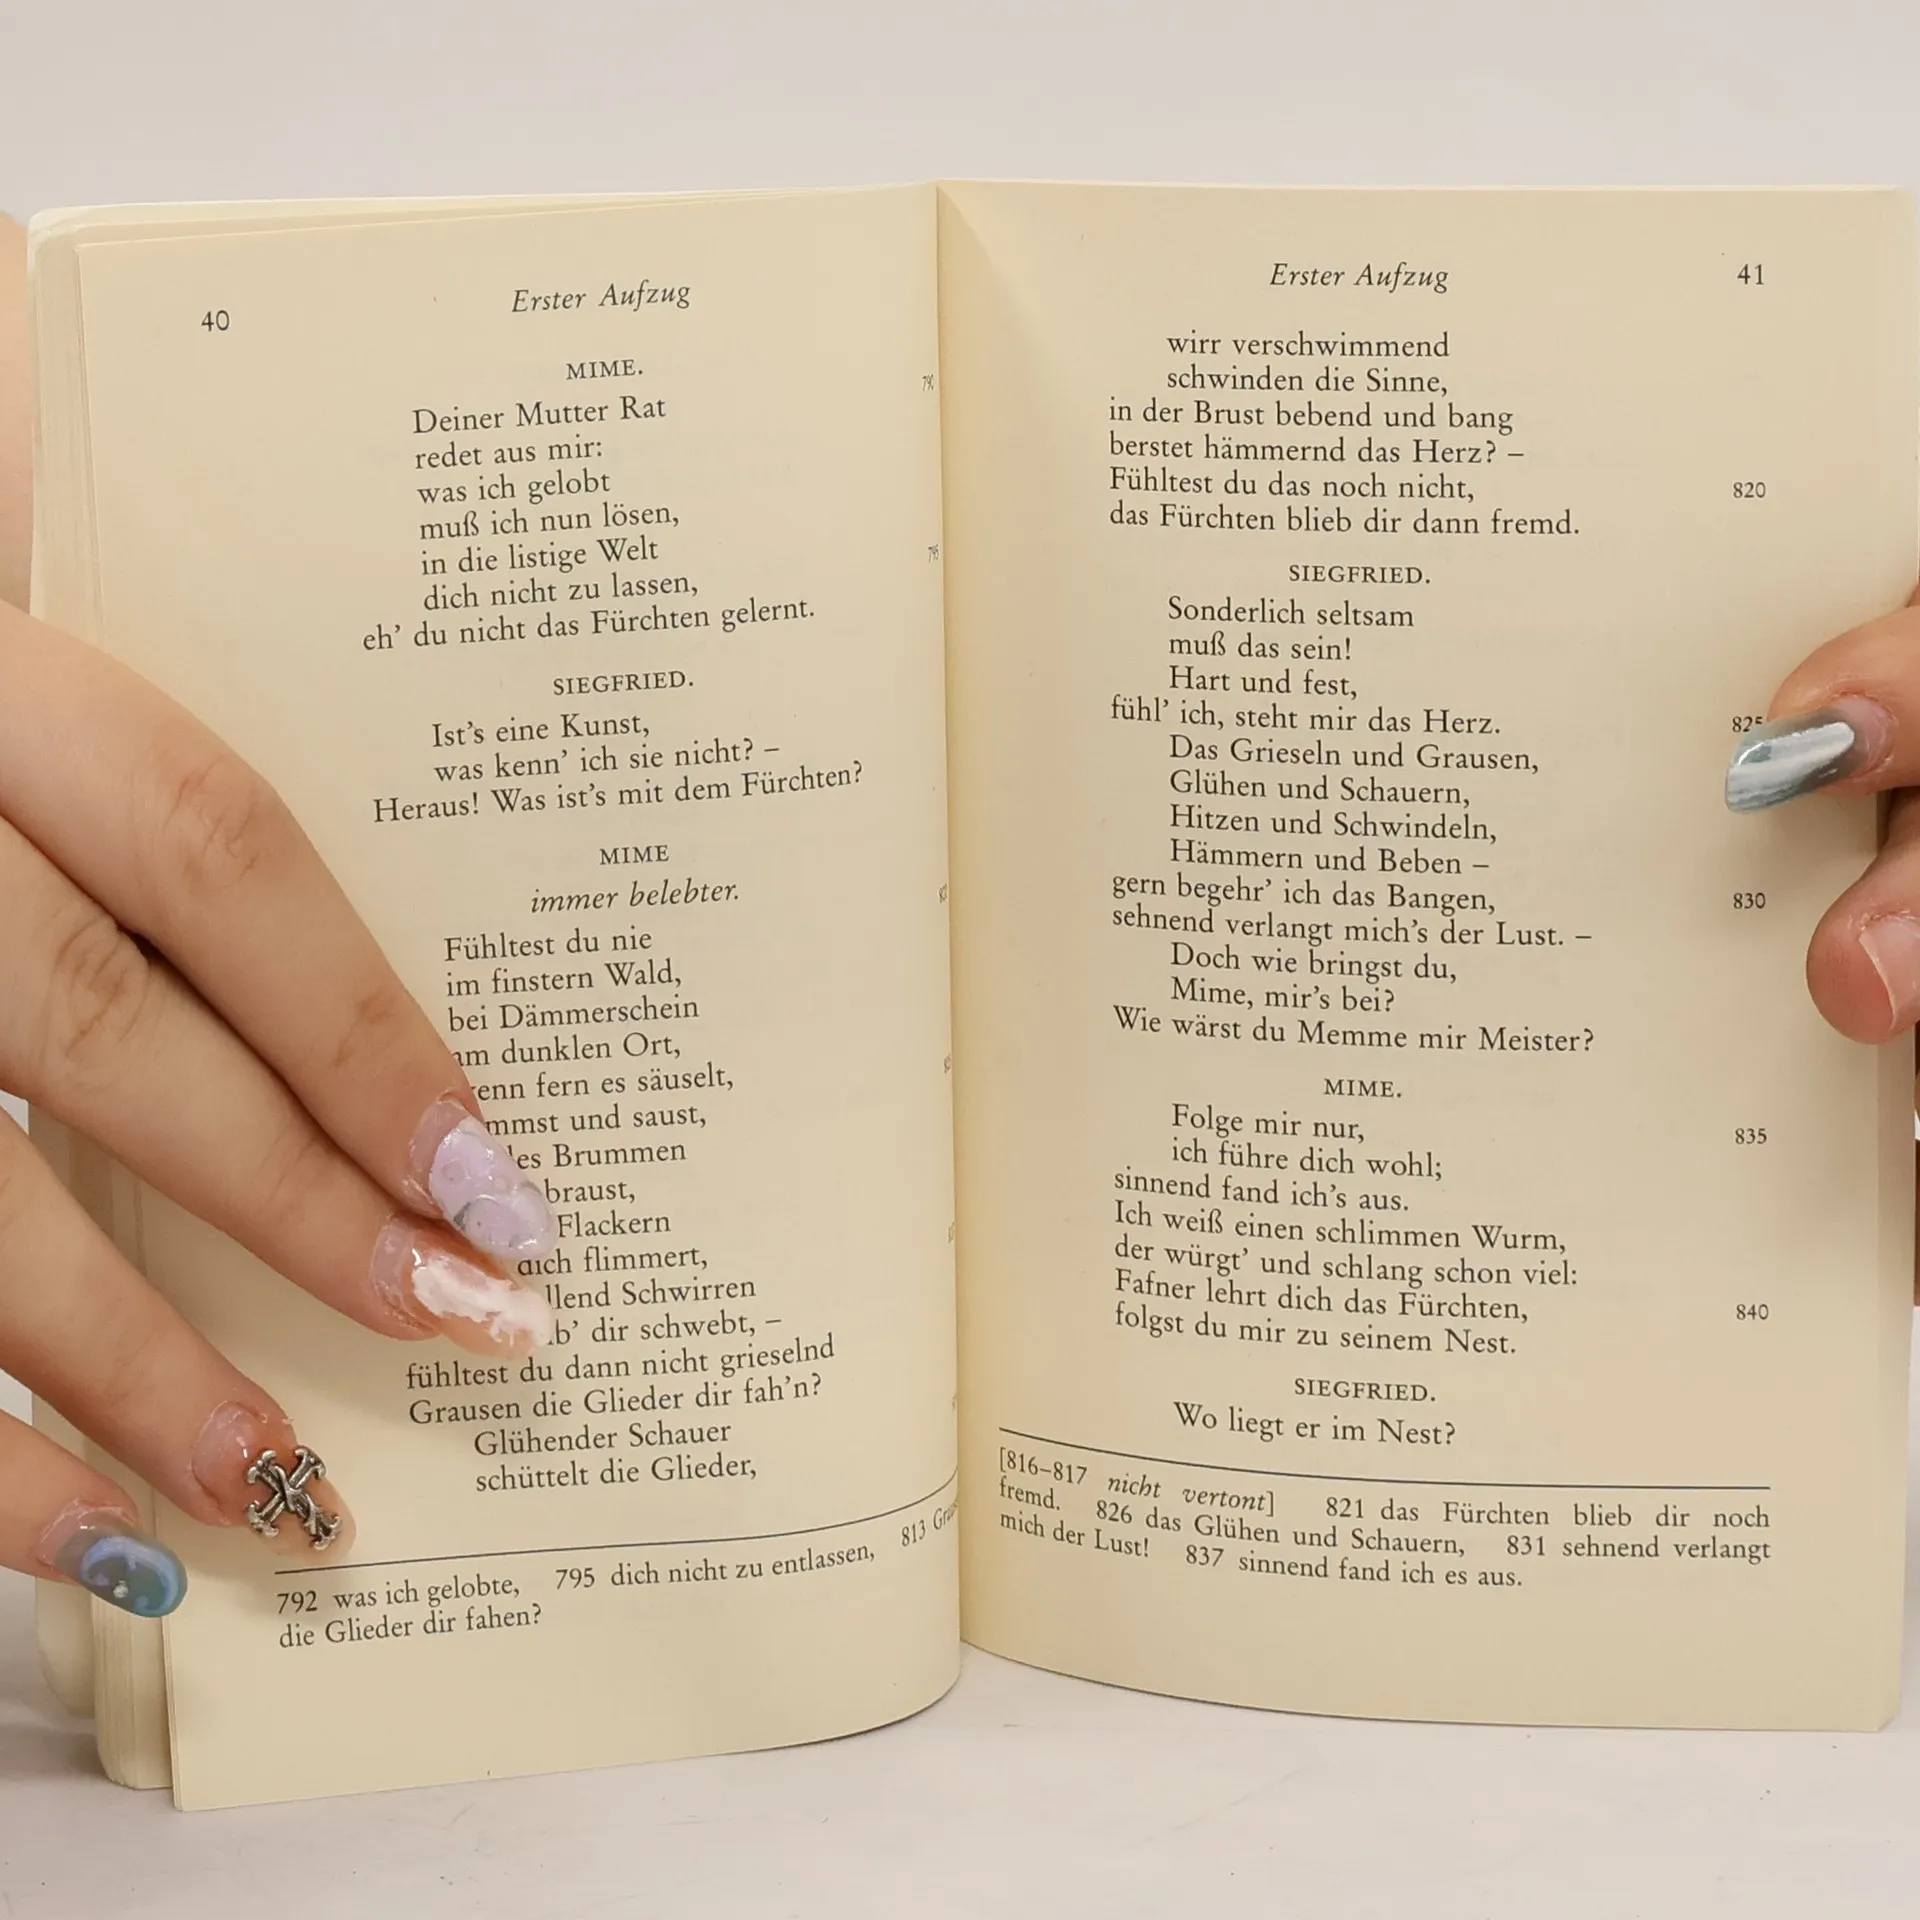 40
Erster Aufzug
MIME.
Deiner Mutter Rat
redet aus mir:
was ich gelobt
muß ich nun lösen,
in die listige Welt
dich nicht zu lassen,
eh’ du nicht das Fürchten gelernt.
790
795
SIEGFRIED.
Ist’s eine Kunst,
was kenn’ ich sie nicht? –
Heraus! Was ist’s mit dem Fürchten?
MIME
immer belebter.
Fühltest du nie
im finstern Wald,
bei Dämmerschein
am dunklen Ort,
fern es säuselt,
und saust,
Brummen
braust,
Flackern
dich flimmert,
Schwirren
dir schwebt, –
fühltest du dann nicht grieselnd
Grausen die Glieder dir fah’n?
Glühender Schauer
schüttelt die Glieder,
792 was ich gelobte, 795 dich nicht zu entlassen, 813
die Glieder dir fahen?
Erster Aufzug
41
wirr verschwimmend
schwinden die Sinne,
in der Brust bebend und bang
berstet hämmernd das Herz? –
Fühltest du das noch nicht,
820
das Fürchten blieb dir dann fremd.
SIEGFRIED.
Sonderlich seltsam
muß das sein!
Hart und fest,
fühl’ ich, steht mir das Herz.
825
Das Grieseln und Grausen,
Glühen und Schauern,
Hitzen und Schwindeln,
Hämmern und Beben –
gern begehr’ ich das Bangen,
830
sehnend verlangt mich’s der Lust. –
Doch wie bringst du,
Mime, mir’s bei?
Wie wärst du Memme mir Meister?
MIME.
Folge mir nur,
835
ich führe dich wohl;
sinnend fand ich’s aus.
Ich weiß einen schlimmen Wurm,
der würgt’ und schlang schon viel:
Fafner lehrt dich das Fürchten,
840
folgst du mir zu seinem Nest.
SIEGFRIED.
Wo liegt er im Nest?
[816–817 nicht vertont] 821 das Fürchten blieb dir noch
fremd. 826 das Glühen und Schauern, 831 sehnend verlangt
mich der Lust! 837 sinnend fand ich es aus.